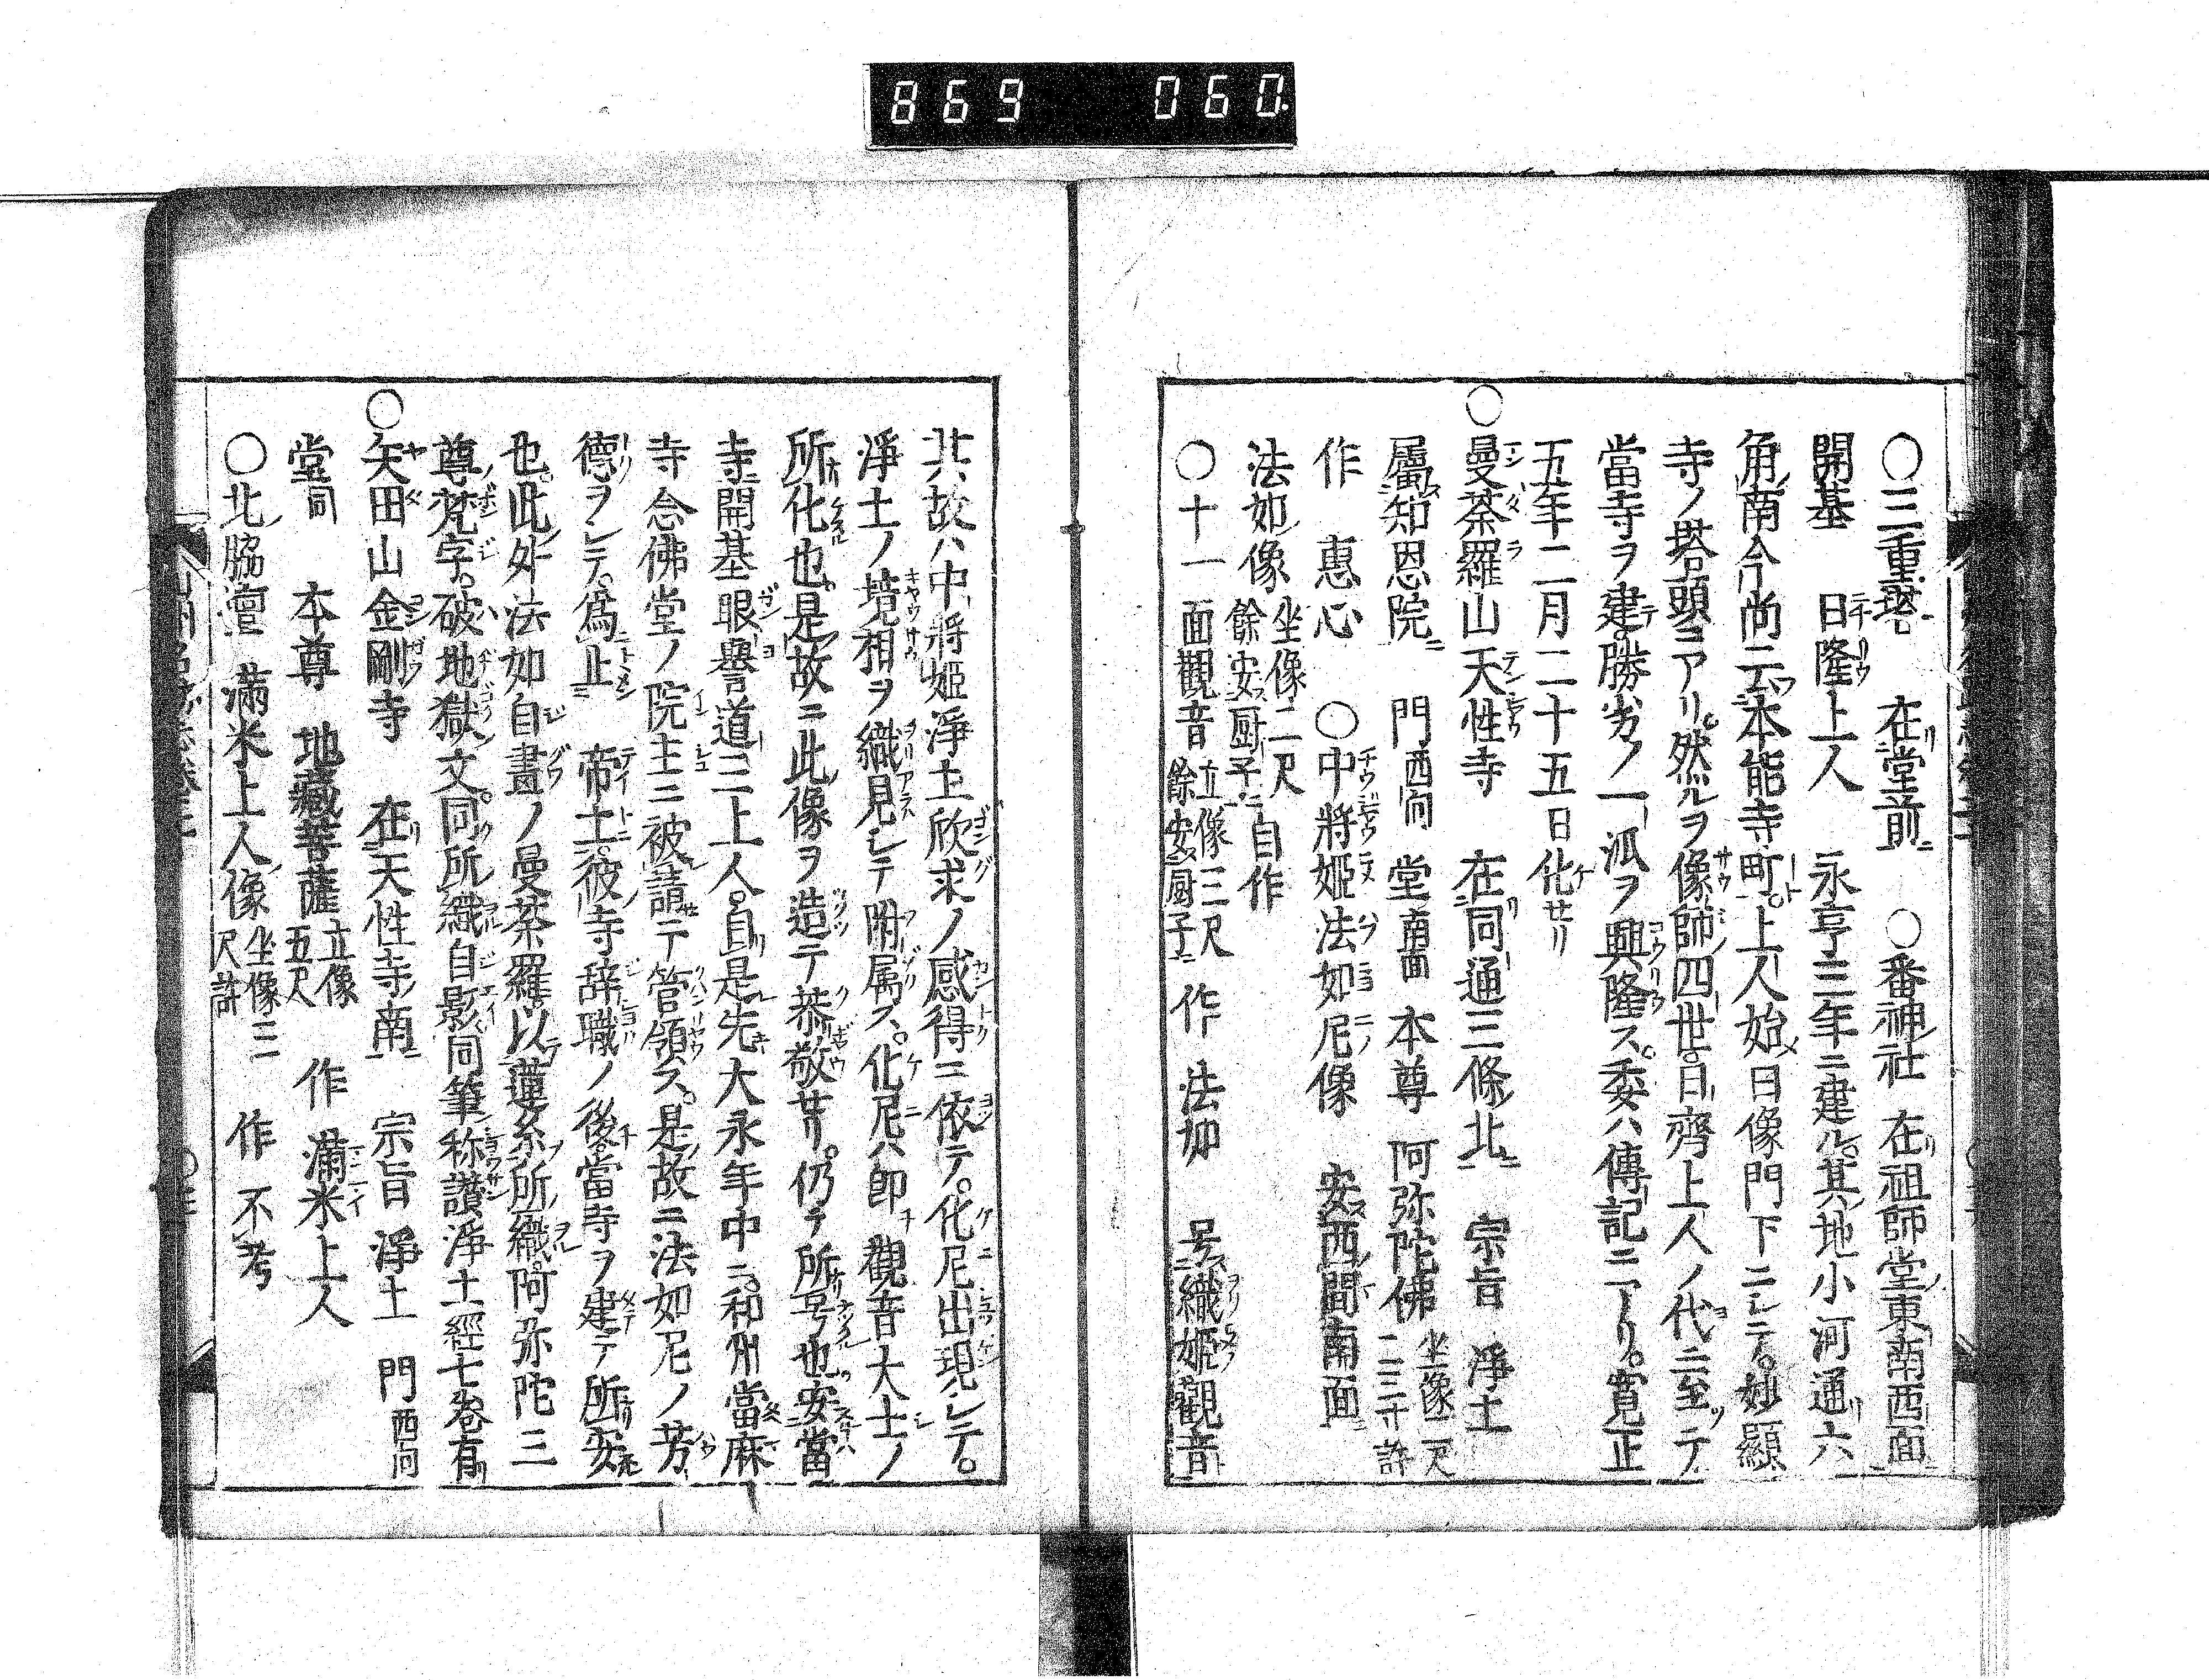 869 060
〇三重塔 在堂前 〇番神社 在祖師堂東南西面
開基 日隆上人 永享三年ニ建ル其地小河通六
角南今尚云本能寺町上人始日像門下ニシテ妙顯
寺ノ塔頭ニアリ然ルヲ像師四世日齊上人ノ代ニ至テ
當寺ヲ建勝劣ノ一派ヲ興隆ス委ハ傳記ニアリ寛正
五年二月二十五日化セリ
〇曼荼羅山天性寺 在同通三條北 宗旨 淨土
屬知恩院 門西向 堂南面 本尊 阿弥陀佛 坐像一尺二三寸許
作 惠心 〇中將姫法如尼像 安西間南面
法如像 坐像二尺餘安厨子 自作
〇十一面觀音 立像三尺餘安厨子 作 法如 号織姫觀音
其故ハ中將姫淨土欣求ノ感得ニ依テ化尼出現シテ
淨土ノ境相ヲ織見シテ附属ス化尼ハ即觀音大士ノ
所化也是故ニ此像ヲ造テ恭敬せり仍テ所号也安當
寺開基眼譽道三上人自是先大永年中ニ和州當麻
寺念佛堂ノ院主ニ被請テ管領ス是故ニ法如尼ノ芳
德ヲシテ爲止 帝土彼寺辞職ノ後當寺ヲ建テ所安
也此外法如自畫ノ曼荼羅以蓮糸所織阿弥陀三
尊梵字破地獄文同所織自影同筆称讃淨土經七卷有
〇矢田山金剛寺 在天性寺南 宗旨 淨土 門西向
堂同 本尊 地藏菩薩 立像五尺 作 滿米上人
〇北脇壇 滿米上人像 坐像三尺許 作 不考